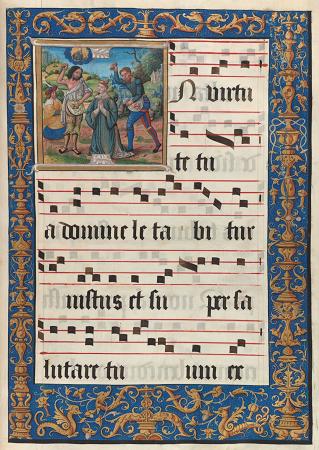 N virtu
te tu
a domine le ta bi tur
iustus et su per sa
lutare tu um ex